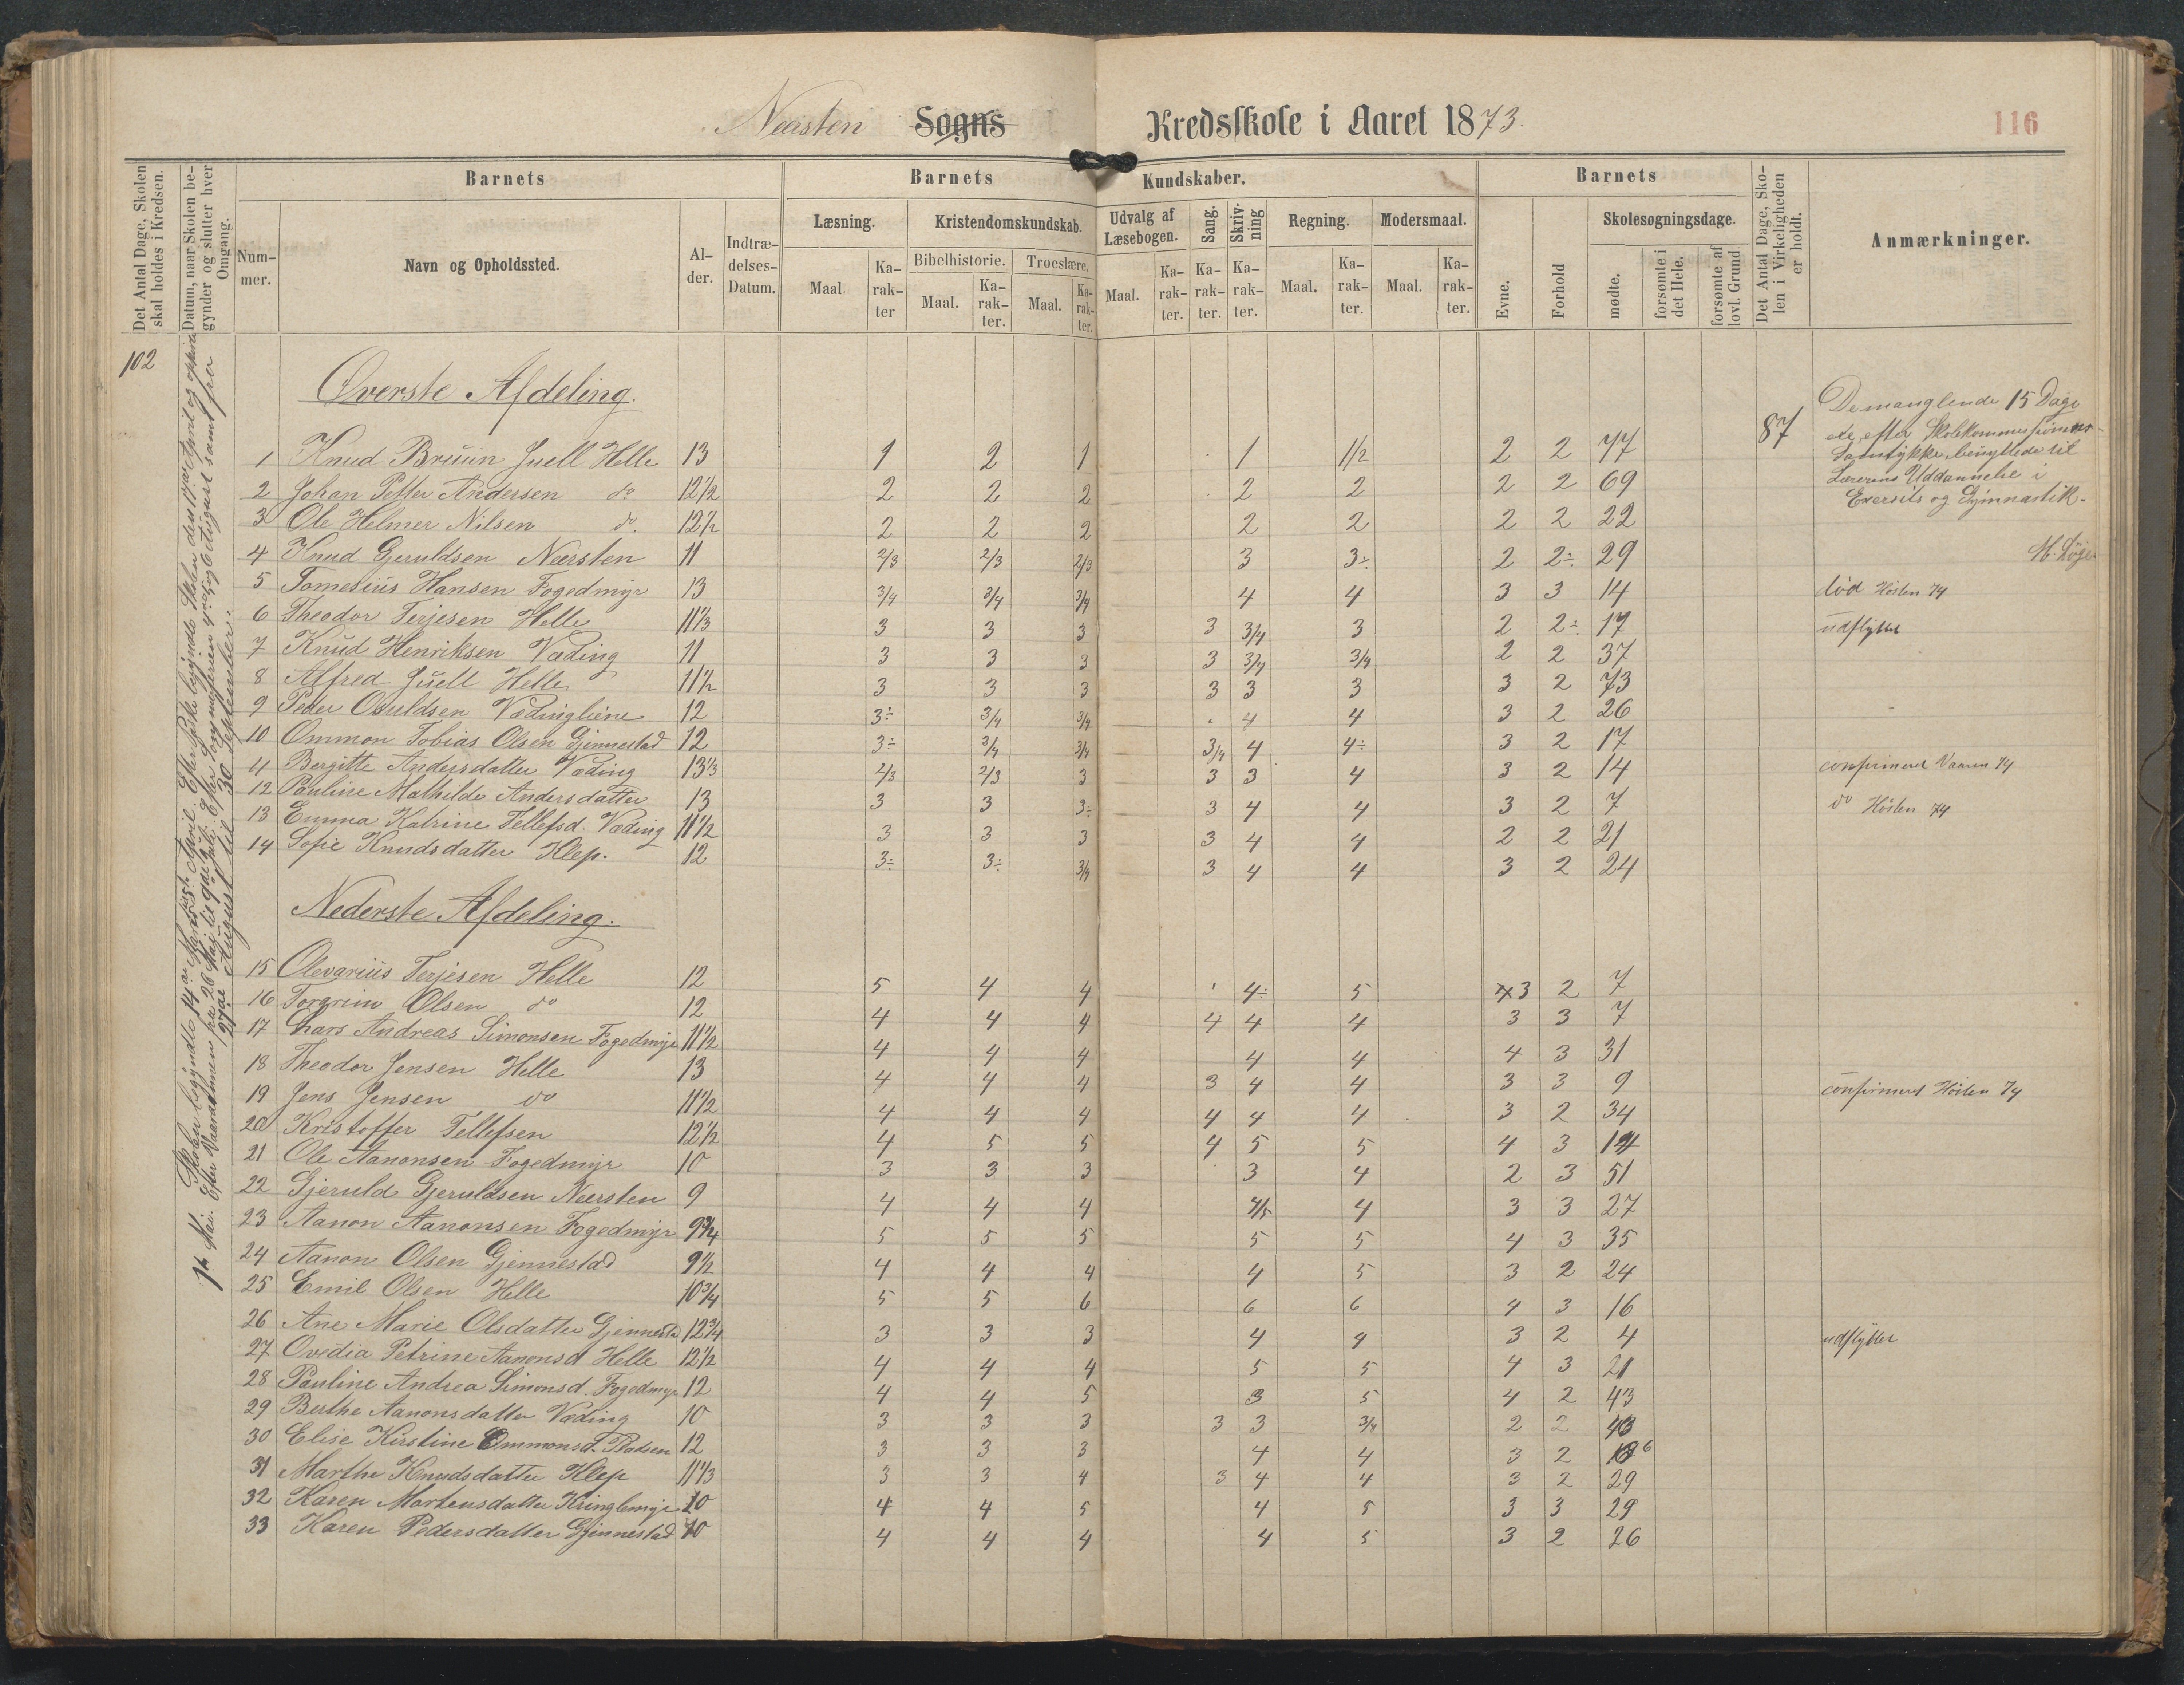 Næsten Sogns Kredsskole i Aaret 1873.
116
Det Antal Dage, Skolen skal holdes i Kredsen.
Datum, naar Skolen begynder og slutter hver Omgang.
Barnets
Nummer.
Navn og Opholdssted.
Alder.
Indtrædelses-Datum.
Barnets Kundskaber.
Læsning.
Maal
Karakter
Kristendomskundskab.
Bibelhistorie.
Maal.
Karakter.
Troeslære.
Maal.
Karakter.
Udvalg af Læsebogen.
Maal.
Karakter.
Sang.
Karakter.
Skrivning
Karakter.
Regning.
Maal.
Karakter.
Modersmaal.
Maal.
Karakter.
Barnets
Evne.
Forhold
Skolesøgningsdage.
mødte.
forsømte i det Hele.
forsømte af lovl. Grund
Det Antal Dage, Skolen i Virkeligheden er holdt.
Anmærkninger.
102
Øverste Afdeling.
87
De manglende 15 Dage
ere, efter Skolekommissionens
Samtykke, benyttede til
Lærerens Uddannelse i
Exersits og Gymnastik.
1 Knud Bruun Juell Helle 13 1 2 1 1 1/2 2 2 77
2 Johan Petter Andersen do 12 1/2 2 2 2 2 2 2 2 69
3 Ole Helmer Nilsen do. 12 1/2 2 2 2 2 2 2 2 22
4 Knud Gjeruldsen Næsten 11 2/3 2/3 2/3 3 3÷ 2 2÷ 29
5 Tomesius Hansen Fogedmyr 13 3/4 3/4 3/4 4 4 3 3 14 död Hösten 74
6 Theodor Terjesen Helle 11 1/3 3 3 3 3 3/4 3 2 2÷ 17 udflyttet
7 Knud Henriksen Væding 11 3 3 3 3 3/4 3/4 2 2 37
8 Alfred Juell Helle 11 1/2 3 3 3 3 3 3 3 2 73
9 Peder Osuldsen Vædingliene 12 3÷ 3/4 3/4 4 4 3 2 26
10 Ommon Tobias Olsen Gjennestad 12 3÷ 3/4 3/4 3/4 4 4÷ 3 2 17
11 Bergitte Andersdatter Væding 13 1/3 2/3 2/3 3 3 3 4 3 2 14 confirmeret Vaaren 74
12 Pauline Mathilde Andersdatter 13 3 3 3÷ 3 4 4 3 2 7 do Hösten 74
13 Emma Katrine Tellefsd. Væding 11 1/2 3 3 3 3 4 4 2 2 21
14 Sofie Knudsdatter Klep. 12 3÷ 3÷ 3/4 3 4 4 3 2 24
Nederste Afdeling.
15 Olevarius Terjesen Helle 12 5 4 4 4÷ 5 3 2 7
16 Torgrim Olsen do 12 4 4 4 4 4 4 3 3 7
17 Lars Andreas Simonsen Fogedmyr 11 1/2 4 4 4 4 4 4 3 31
18 Theodor Jensen Helle 13 4 4 4 3 4 4 3 3 9 confirmeret Hösten 74
19 Jens Jensen do 11 1/2 4 4 4 4 4 4 3 2 34
20 Kristoffer Tellefsen 12 1/2 4 5 5 4 5 5 4 3 14
21 Ole Aanonsen Fogedmyr 10 3 3 3 3 4 2 3 51
22 Gjeruld Gjeruldsen Næsten 9 4 4 4 4/5 4 3 3 27
23 Aanon Aanonsen Fogedmyr 9 3/4 5 5 5 5 5 4 3 35
24 Aanon Olsen Gjennestad 9 1/2 4 4 4 4 5 3 2 24
25 Emil Olsen Helle 10 3/4 5 5 6 6 6 4 3 16
26 Ane Marie Olsdatter Gjennesta 12 3/4 3 3 3 4 4 3 2 4 udflyttet
27 Ovedia Petrine Aanonsd Helle 12 1/2 4 4 4 5 5 4 3 21
28 Pauline Andrea Simonsd. Fogedmyr 12 4 4 5 3 5 4 2 43
29 Berthe Aanonsdatter Væding 10 3 3 3 3 3 3/4 2 2 43
30 Elise Kirstine Ommonsd. Pladsen 12 3 3 3 4 4 3 2
31 Marthe Knudsdatter Klep 11 1/3 3 3 4 3 4 4 3 2 29
32 Karen Mortensdatter Kringlemyr 10 4 4 5 4 5 3 3 29
33 Karen Pedersdatter Gjennestad 10 4 4 4 4 5 3 2 26